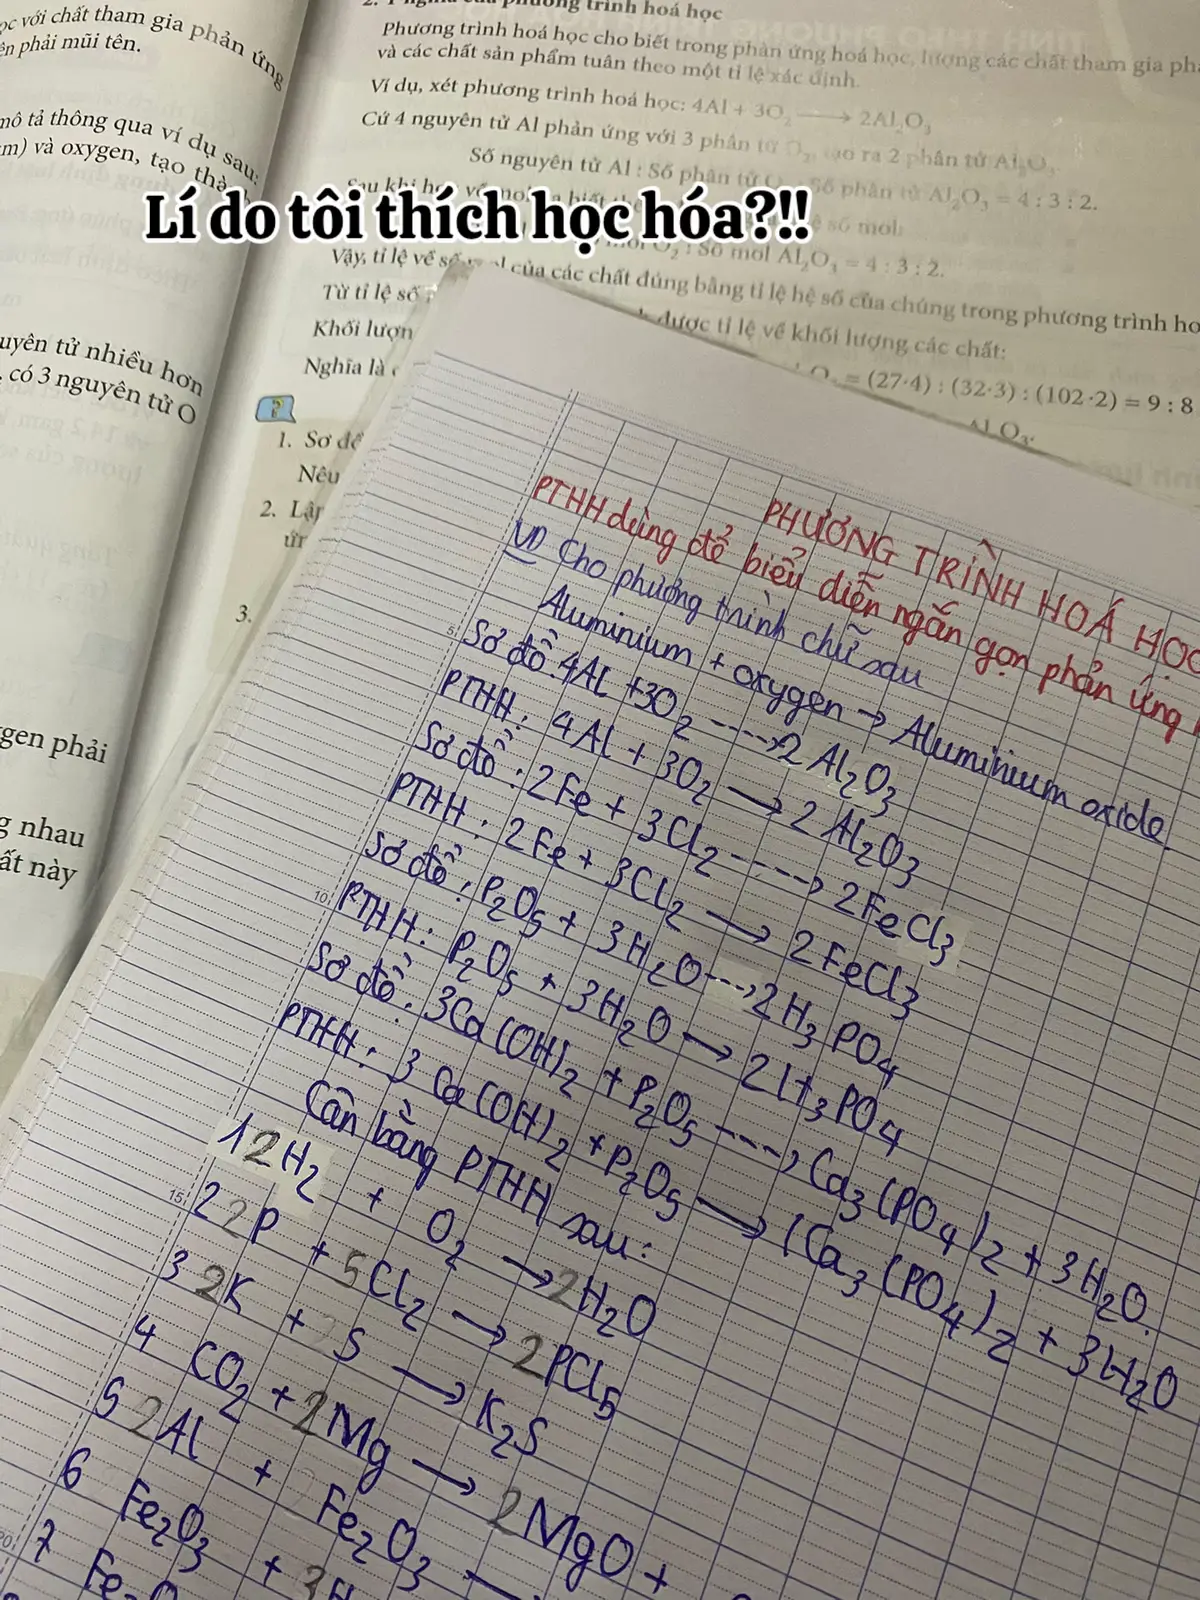 ọc với chất tham gia phản ứng
ên phải mũi tên.
mô tả thông qua ví dụ sau:
m) và oxygen, tạo
uyên tử nhiều hơn
có 3 nguyên tử O
gen phải
g nhau
ất này
phương trình hoá học
Phương trình hoá học cho biết trong phản ứng hoá học, lượng các chất tham gia
và các chất sản phẩm tuân theo một tỉ lệ xác định.
Ví dụ, xét phương trình hoá học: 4Al + 3O₂ ⟶ 2Al₂O₃
Cứ 4 nguyên tử Al phản ứng với 3 phân tử O₂, tạo ra 2 phân tử Al₂O₃.
Số nguyên tử Al : Số phân tử : Số phân tử Al₂O₃ = 4 : 3 : 2.
Lí do tôi thích học hóa?!!
số mol:
O₂ : Số mol Al₂O₃ = 4 : 3 : 2.
Vậy, tỉ lệ về của các chất đúng bằng tỉ lệ hệ số của chúng trong phương trình
Từ tỉ lệ số được tỉ lệ về khối lượng các chất:
Khối lượn = (27·4) : (32·3) : (102·2) = 9 : 8
Nghĩa là Al₂O₃.
?
1. Sơ đồ
Nêu
2. Lập
3.
PHƯƠNG TRÌNH HOÁ HỌC
PTHH dùng để biểu diễn ngắn gọn phản ứng
VD Cho phương trình chữ sau
Aluminium + oxygen → Aluminium oxide
5
Sơ đồ: 4Al + 3O₂ ----> 2Al₂O₃
PTHH: 4Al + 3O₂ ⟶ 2Al₂O₃
Sơ đồ: 2Fe + 3Cl₂ ----> 2FeCl₃
PTHH: 2Fe + 3Cl₂ ⟶ 2FeCl₃
Sơ đồ: P₂O₅ + 3H₂O ----> 2H₃PO₄
10
PTHH: P₂O₅ + 3H₂O ⟶ 2H₃PO₄
Sơ đồ: 3Ca(OH)₂ + P₂O₅ ----> Ca₃(PO₄)₂ + 3H₂O.
PTHH: 3Ca(OH)₂ + P₂O₅ ⟶ 1Ca₃(PO₄)₂ + 3H₂O
Cân bằng PTHH sau:
1 2H₂ + O₂ ⟶ 2H₂O
15
2 2P + 5Cl₂ ⟶ 2PCl₅
3 2K + S ⟶ K₂S
4 CO₂ + 2Mg ⟶ 2MgO +
5 2Al + Fe₂O₃
6 Fe₂O₃ + 3H
20
7 Fe₂O